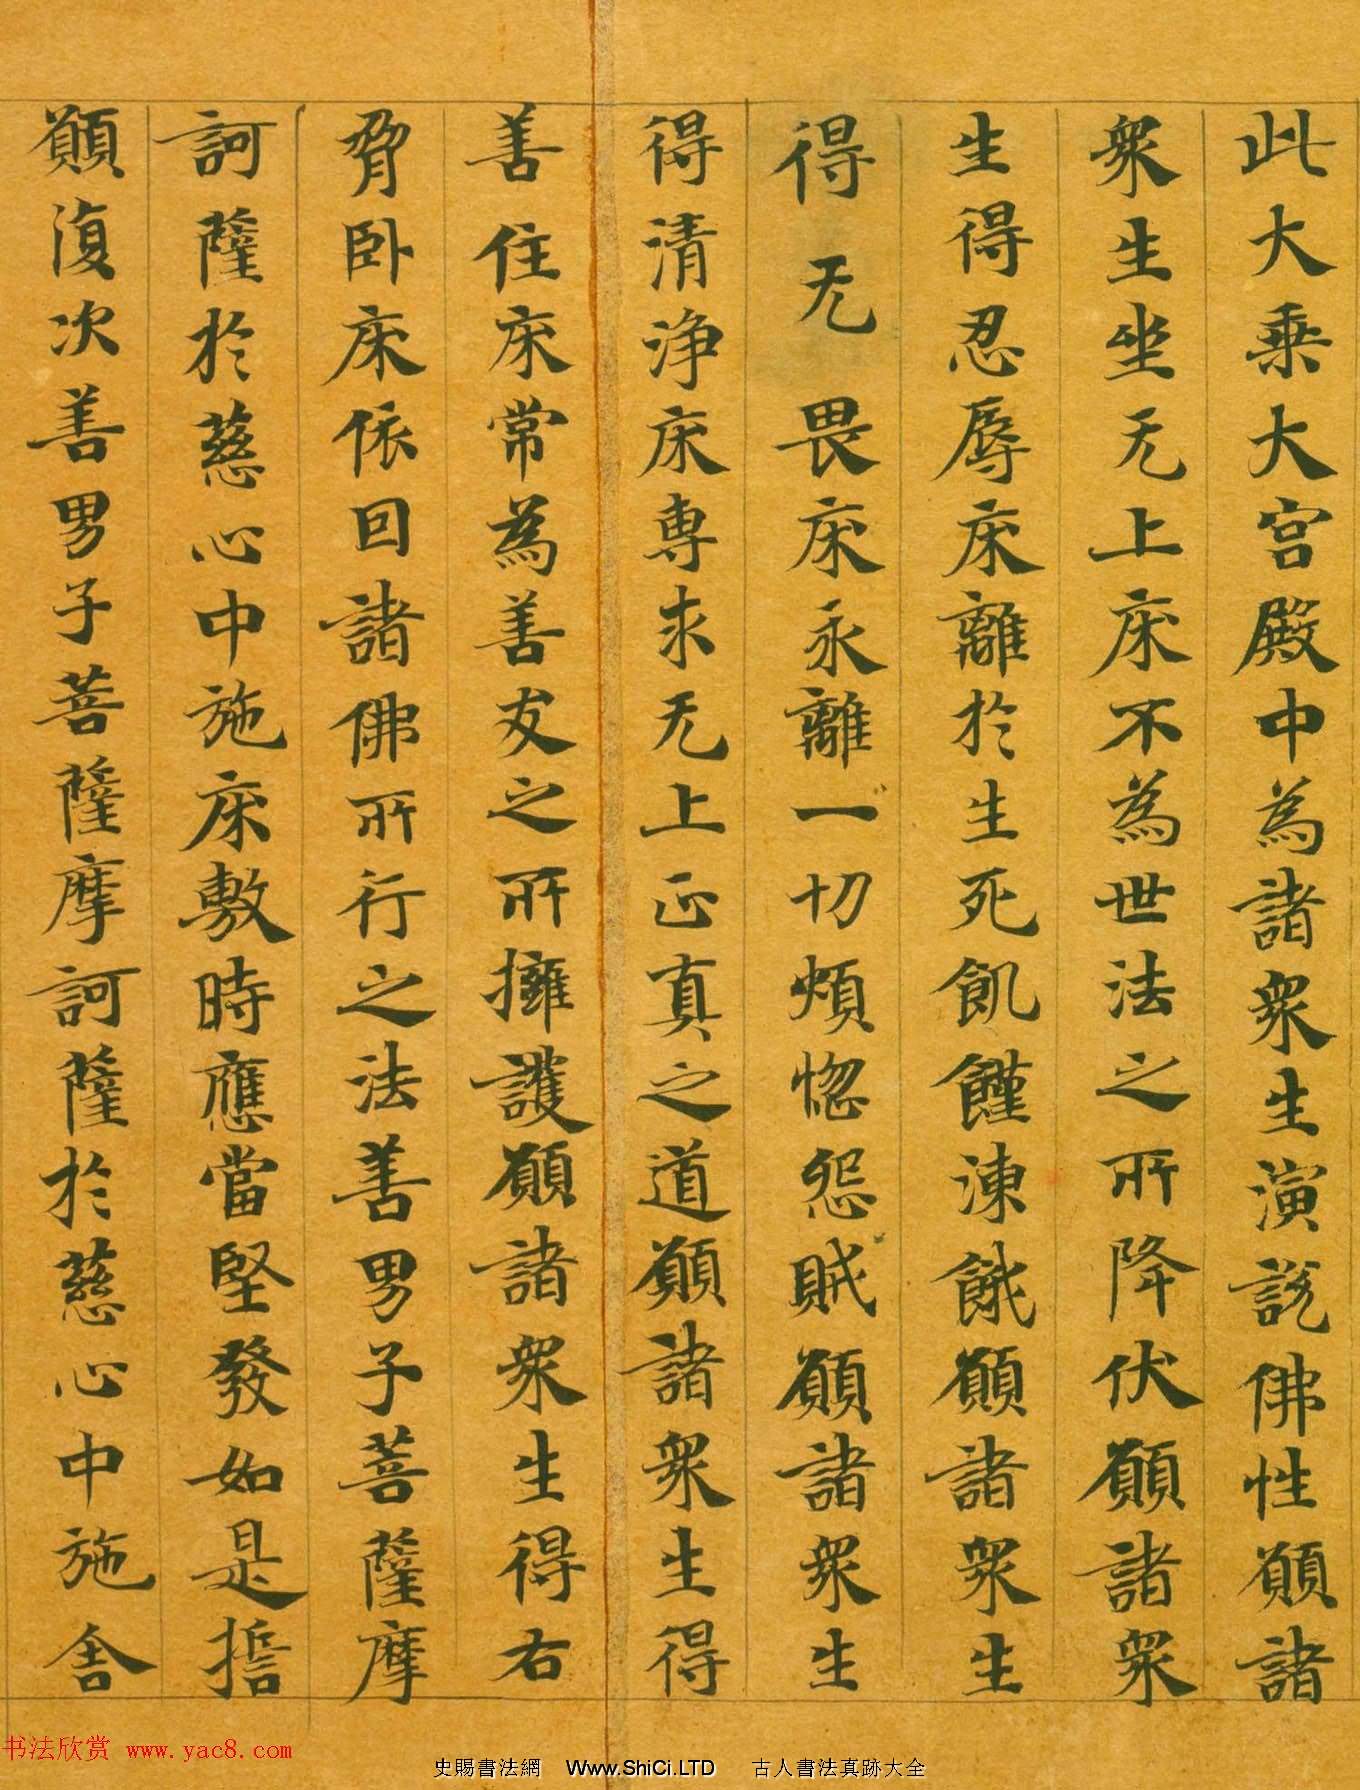 此大乗大宮殿中為諸衆生演説佛性願諸
衆生坐无上床不為世法之所降伏願諸衆
生得忍辱床離於生死飢饉凍餓願諸衆生
得无畏床永離一切煩惱怨賊願諸衆生
得清浄床専求无上正真之道願諸衆生得
善住床常為善友之所擁護願諸衆生得右
脅卧床依因諸佛所行之法善男子菩薩摩
訶薩於慈心中施床敷時應當堅發如是擔
願復次善男子菩薩摩訶薩於慈心中施舎
书法欣赏 www.yac8.com
史賜書法網 Www.ShiCi.LTD 古人書法真跡大全